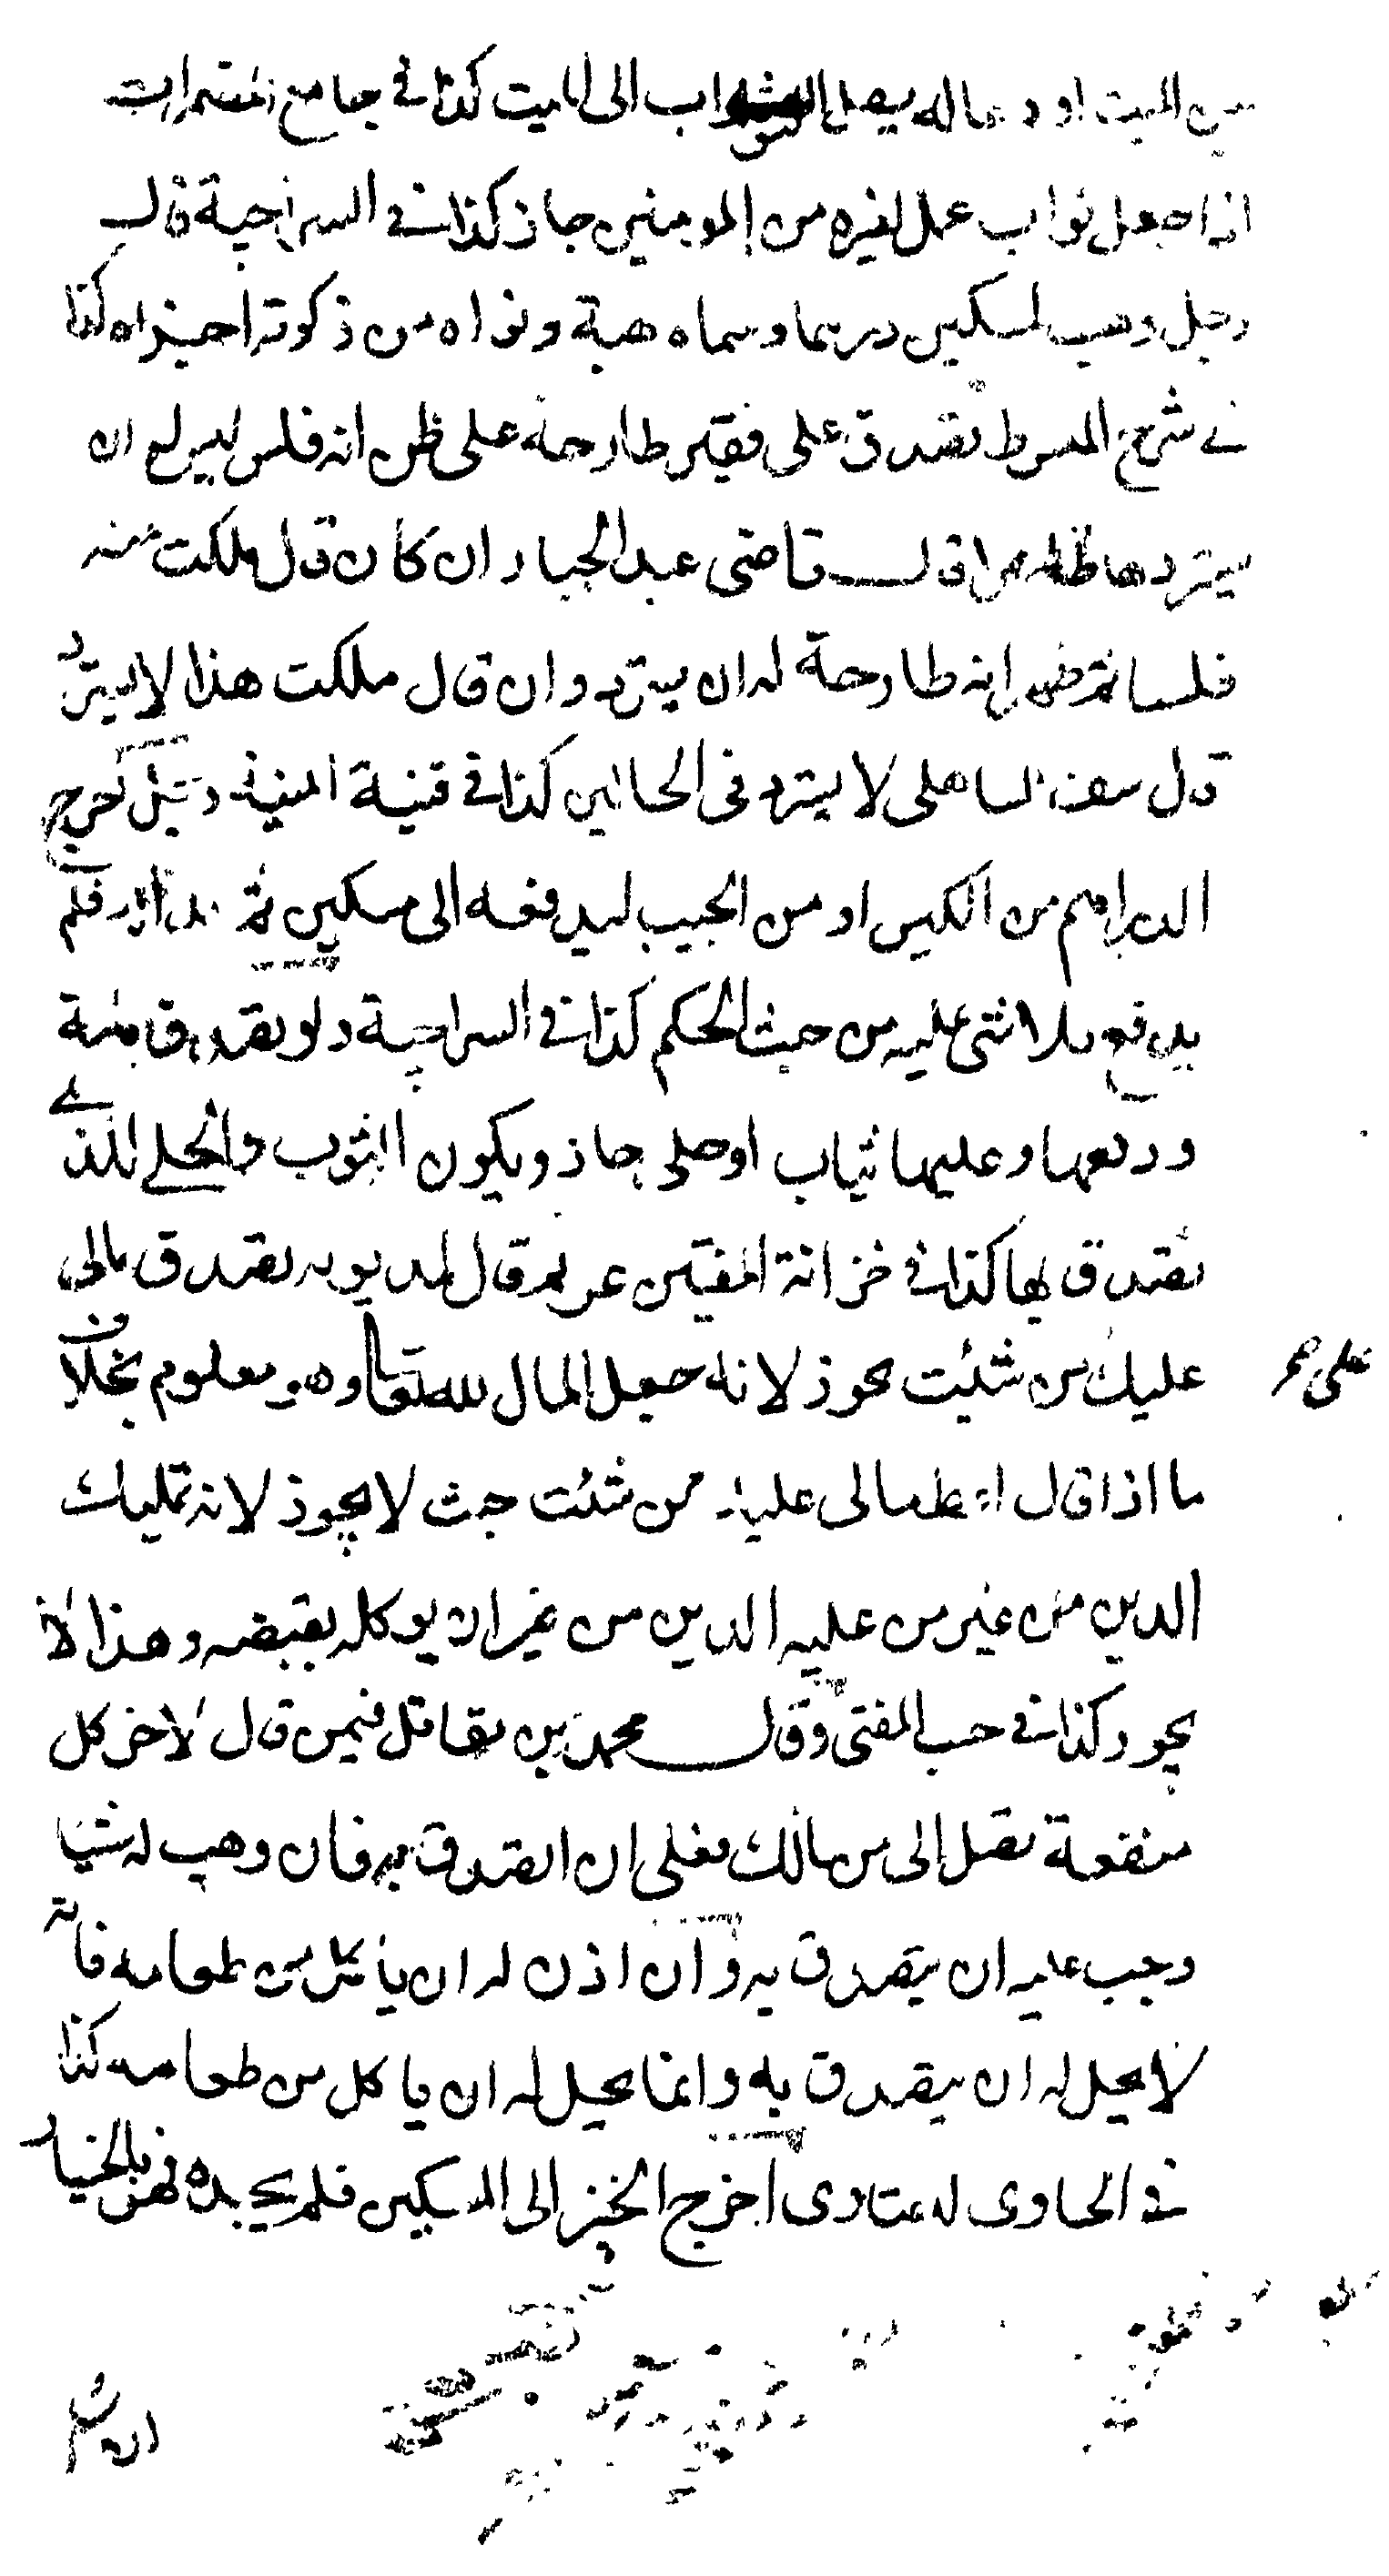 عن الميت او دعا له يصل الثواب الى الميت كذا في جامع المضمرات
اذا جعل ثواب عمل لغيره من المومنين جاز كذا في السراجية قال
رجل وهب لمسكين درهما وسماه هبة ونواه من زكوته اجيزاه كذا
في شرح المبسوط تصدق على فقير طازجة على ظن انه فلس ليس له ان
يستردها ظاهرا قال قاضى عبد الجبار ان كان قال ملكت منه
فلسا ثم ظهر انه طازجة له ان يسترد وان قال ملكت هذا لا يسترد
قال سيف السا هلى لا يسترد فى الحالين كذا في قنية المنية رجل يخرج
الدراهم من الكيس او من الجيب ليدفعه الى مسكين ثم بدا له فلم
يدفع فلا شى عليه من حيث الحكم كذا في السراجية ولو تصدق بامة
ودفعها وعليها ثياب او حلى جاز ويكون الثوب والحلي للذي
تصدق بها كذا في خزانة المفتين عريم قال لمديونه تصدق بمالى
عليك من شئت يجوز لانه جعل المال لله تعالى وهو معلوم بخلاف
على عمر
ما اذا قال اعط مالى عليك من شئت حيث لا يجوز لانه تمليك
الدين من غير من عليه الدين من غير ان يوكله بقبضه وهذا لا
يجوز كذا في حسب المفتى وقال محمد بن مقاتل فيمن قال لاخر كل
منفعة تصل الى من مالك فعلى ان اتصدق به فان وهب له شيا
وجب عليه ان يتصدق به وان اذن له ان ياكل من طعامه فانه
لا يحل له ان يتصدق به وانما يحل له ان ياكل من طعامه كذا
في الحاوى له فتاوى اخرج الخبز الى المسكين فلم يجده فهو بالخيار
ان شا